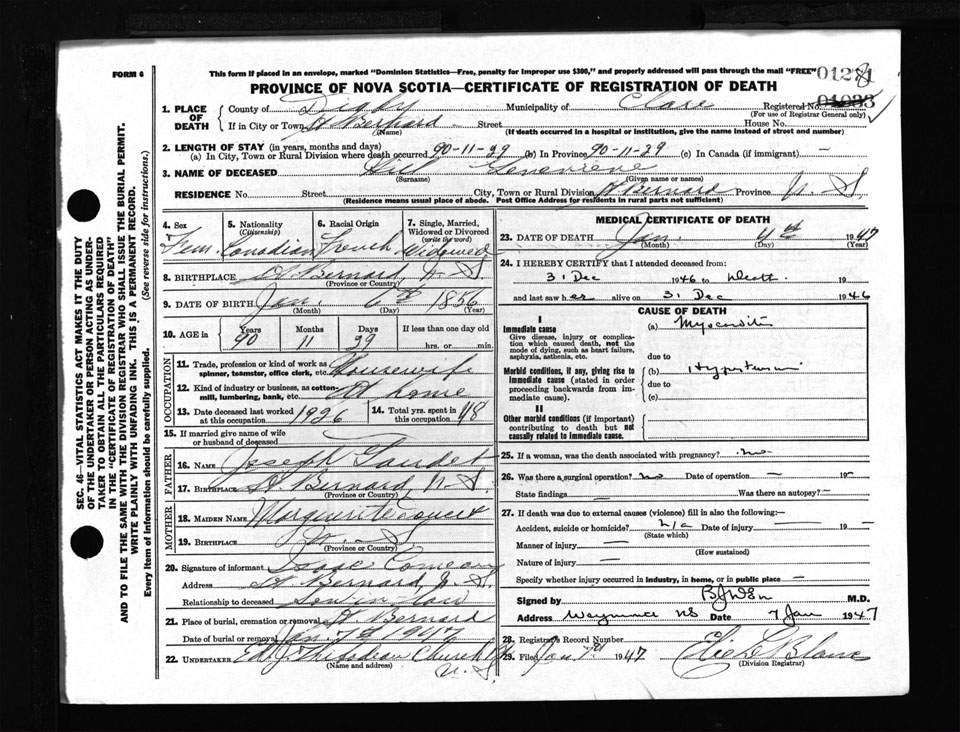 FORM 6
This form if placed in an envelope, marked "Dominion Statistics—Free, penalty for improper use $300," and properly addressed will pass through the mail "FREE"
PROVINCE OF NOVA SCOTIA—CERTIFICATE OF REGISTRATION OF DEATH
1. PLACE OF DEATH
County of Digby Municipality of Clare Registered No.
(For use of Registrar General only)
If in City or Town St Bernard Street House No.
(Name) (If death occurred in a hospital or institution, give the name instead of street and number)
2. LENGTH OF STAY (in years, months and days)
(a) In City, Town or Rural Division where death occurred 90-11-29 (b) In Province 90-11-29 (c) In Canada (if immigrant) —
3. NAME OF DECEASED Genevieve
(Surname) (Given name or names)
RESIDENCE No. Street City, Town or Rural Division St Bernard Province N. S.
(Residence means usual place of abode. Post Office Address for residents in rural parts not sufficient)
4. Sex Fem.
5. Nationality (Citizenship) Canadian
6. Racial Origin French
7. Single, Married, Widowed or Divorced (write the word) Widowed
8. BIRTHPLACE St. Bernard, N. S.
(Province or Country)
9. DATE OF BIRTH Jan. 6th 1856
(Month) (Day) (Year)
10. AGE in Years 90 Months 11 Days 29 If less than one day hrs. or min.
OCCUPATION
11. Trade, profession or kind of work as spinner, teamster, office clerk, etc. Housewife
12. Kind of industry or business, as cotton-mill, lumbering, bank, etc. At home
13. Date deceased last worked at this occupation 1926
14. Total yrs. spent in this occupation 48
15. If married give name of wife or husband of deceased
FATHER
16. NAME Joseph Gaudet
17. BIRTHPLACE St. Bernard, N. S.
(Province or Country)
MOTHER
18. MAIDEN NAME Marguerite
19. BIRTHPLACE N. S
(Province or Country)
20. Signature of informant Isaac Comeau
Address St Bernard, N. S.
Relationship to deceased Son in law
21. Place of burial, cremation or removal St. Bernard
Date of burial or removal Jan. 7th 1947
22. UNDERTAKER Ed. J. Thibodeau Church Pt.
(Name and address) N. S.
MEDICAL CERTIFICATE OF DEATH
23. DATE OF DEATH Jan 4th 1947
(Month) (Day) (Year)
24. I HEREBY CERTIFY that I attended deceased from:
31 Dec 1946 to Death 19
and last saw her alive on 31 Dec 1946
CAUSE OF DEATH
I
Immediate cause
Give disease, injury or complication which caused death, not the mode of dying, such as heart failure, asphyxia, asthenia, etc.
(a) Myocarditis
due to
Morbid conditions, if any, giving rise to immediate cause (stated in order proceeding backwards from immediate cause).
(b) Hypertension
due to
(c)
II
Other morbid conditions (if important) contributing to death but not causally related to immediate cause.
25. If a woman, was the death associated with pregnancy? no
26. Was there a surgical operation? no Date of operation — 19 —
State findings — Was there an autopsy? —
27. If death was due to external causes (violence) fill in also the following:—
Accident, suicide or homicide? n/a Date of injury — 19 —
(State which)
Manner of injury —
(How sustained)
Nature of injury —
Specify whether injury occurred in industry, in home, or in public place —
Signed by M.D.
Address Weymouth NS Date 7 Jan 1947
28. Registrar's Record Number
29. Filed Jan 1947
(Division Registrar)
SEC. 46—VITAL STATISTICS ACT MAKES IT THE DUTY
OF THE UNDERTAKER OR PERSON ACTING AS UNDER-
TAKER TO OBTAIN ALL THE PARTICULARS REQUIRED
IN THE "CERTIFICATE OF REGISTRATION OF DEATH"
AND TO FILE THE SAME WITH THE DIVISION REGISTRAR WHO SHALL ISSUE THE BURIAL PERMIT.
WRITE PLAINLY WITH UNFADING INK. THIS IS A PERMANENT RECORD.
Every item of information should be carefully supplied. (See reverse side for instructions.)